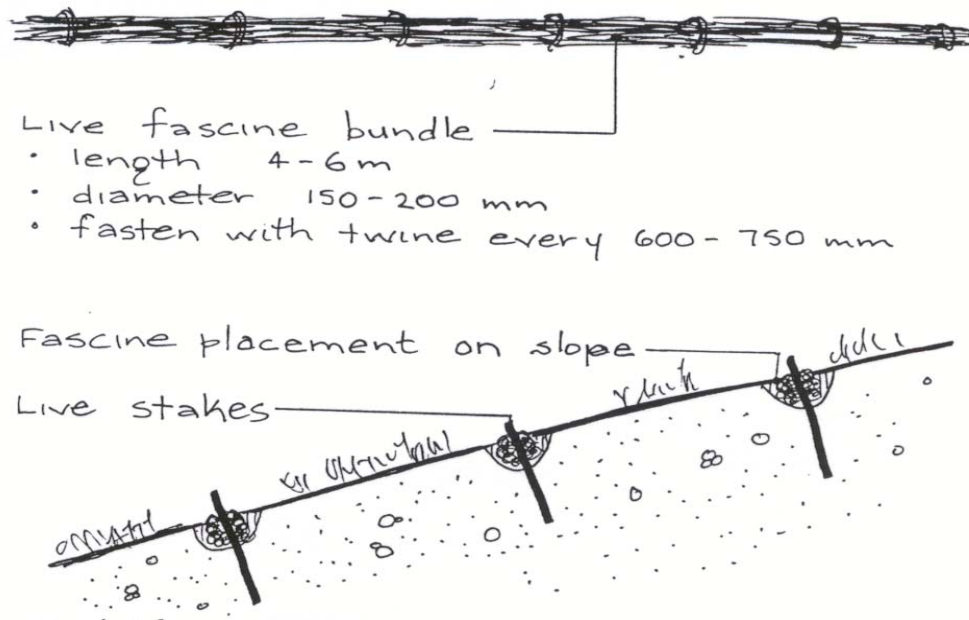 Live fascine bundle
• length 4-6m
• diameter 150-200 mm
• fasten with twine every 600-750 mm
Fascine placement on slope
Live stakes